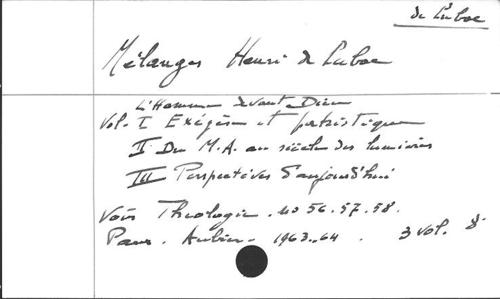 de Lubac
Mélanges Henri de Lubac
L'Homme devant Dieu
Vol. I Exégèse et patristique
II Du M.A. au siècle des lumières
III Perspectives d'aujourd'hui
Voir Theologie. no 56.57.58.
Paris. Aubier. 1963-64. 3 vol. 8°